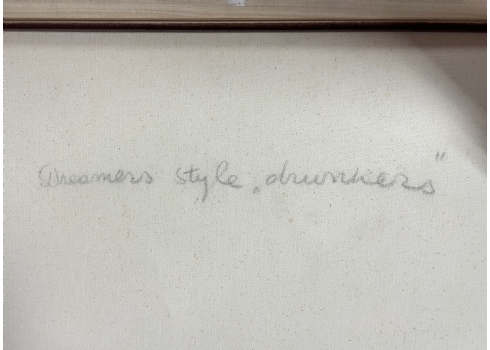 Dreamers style „drunkers"